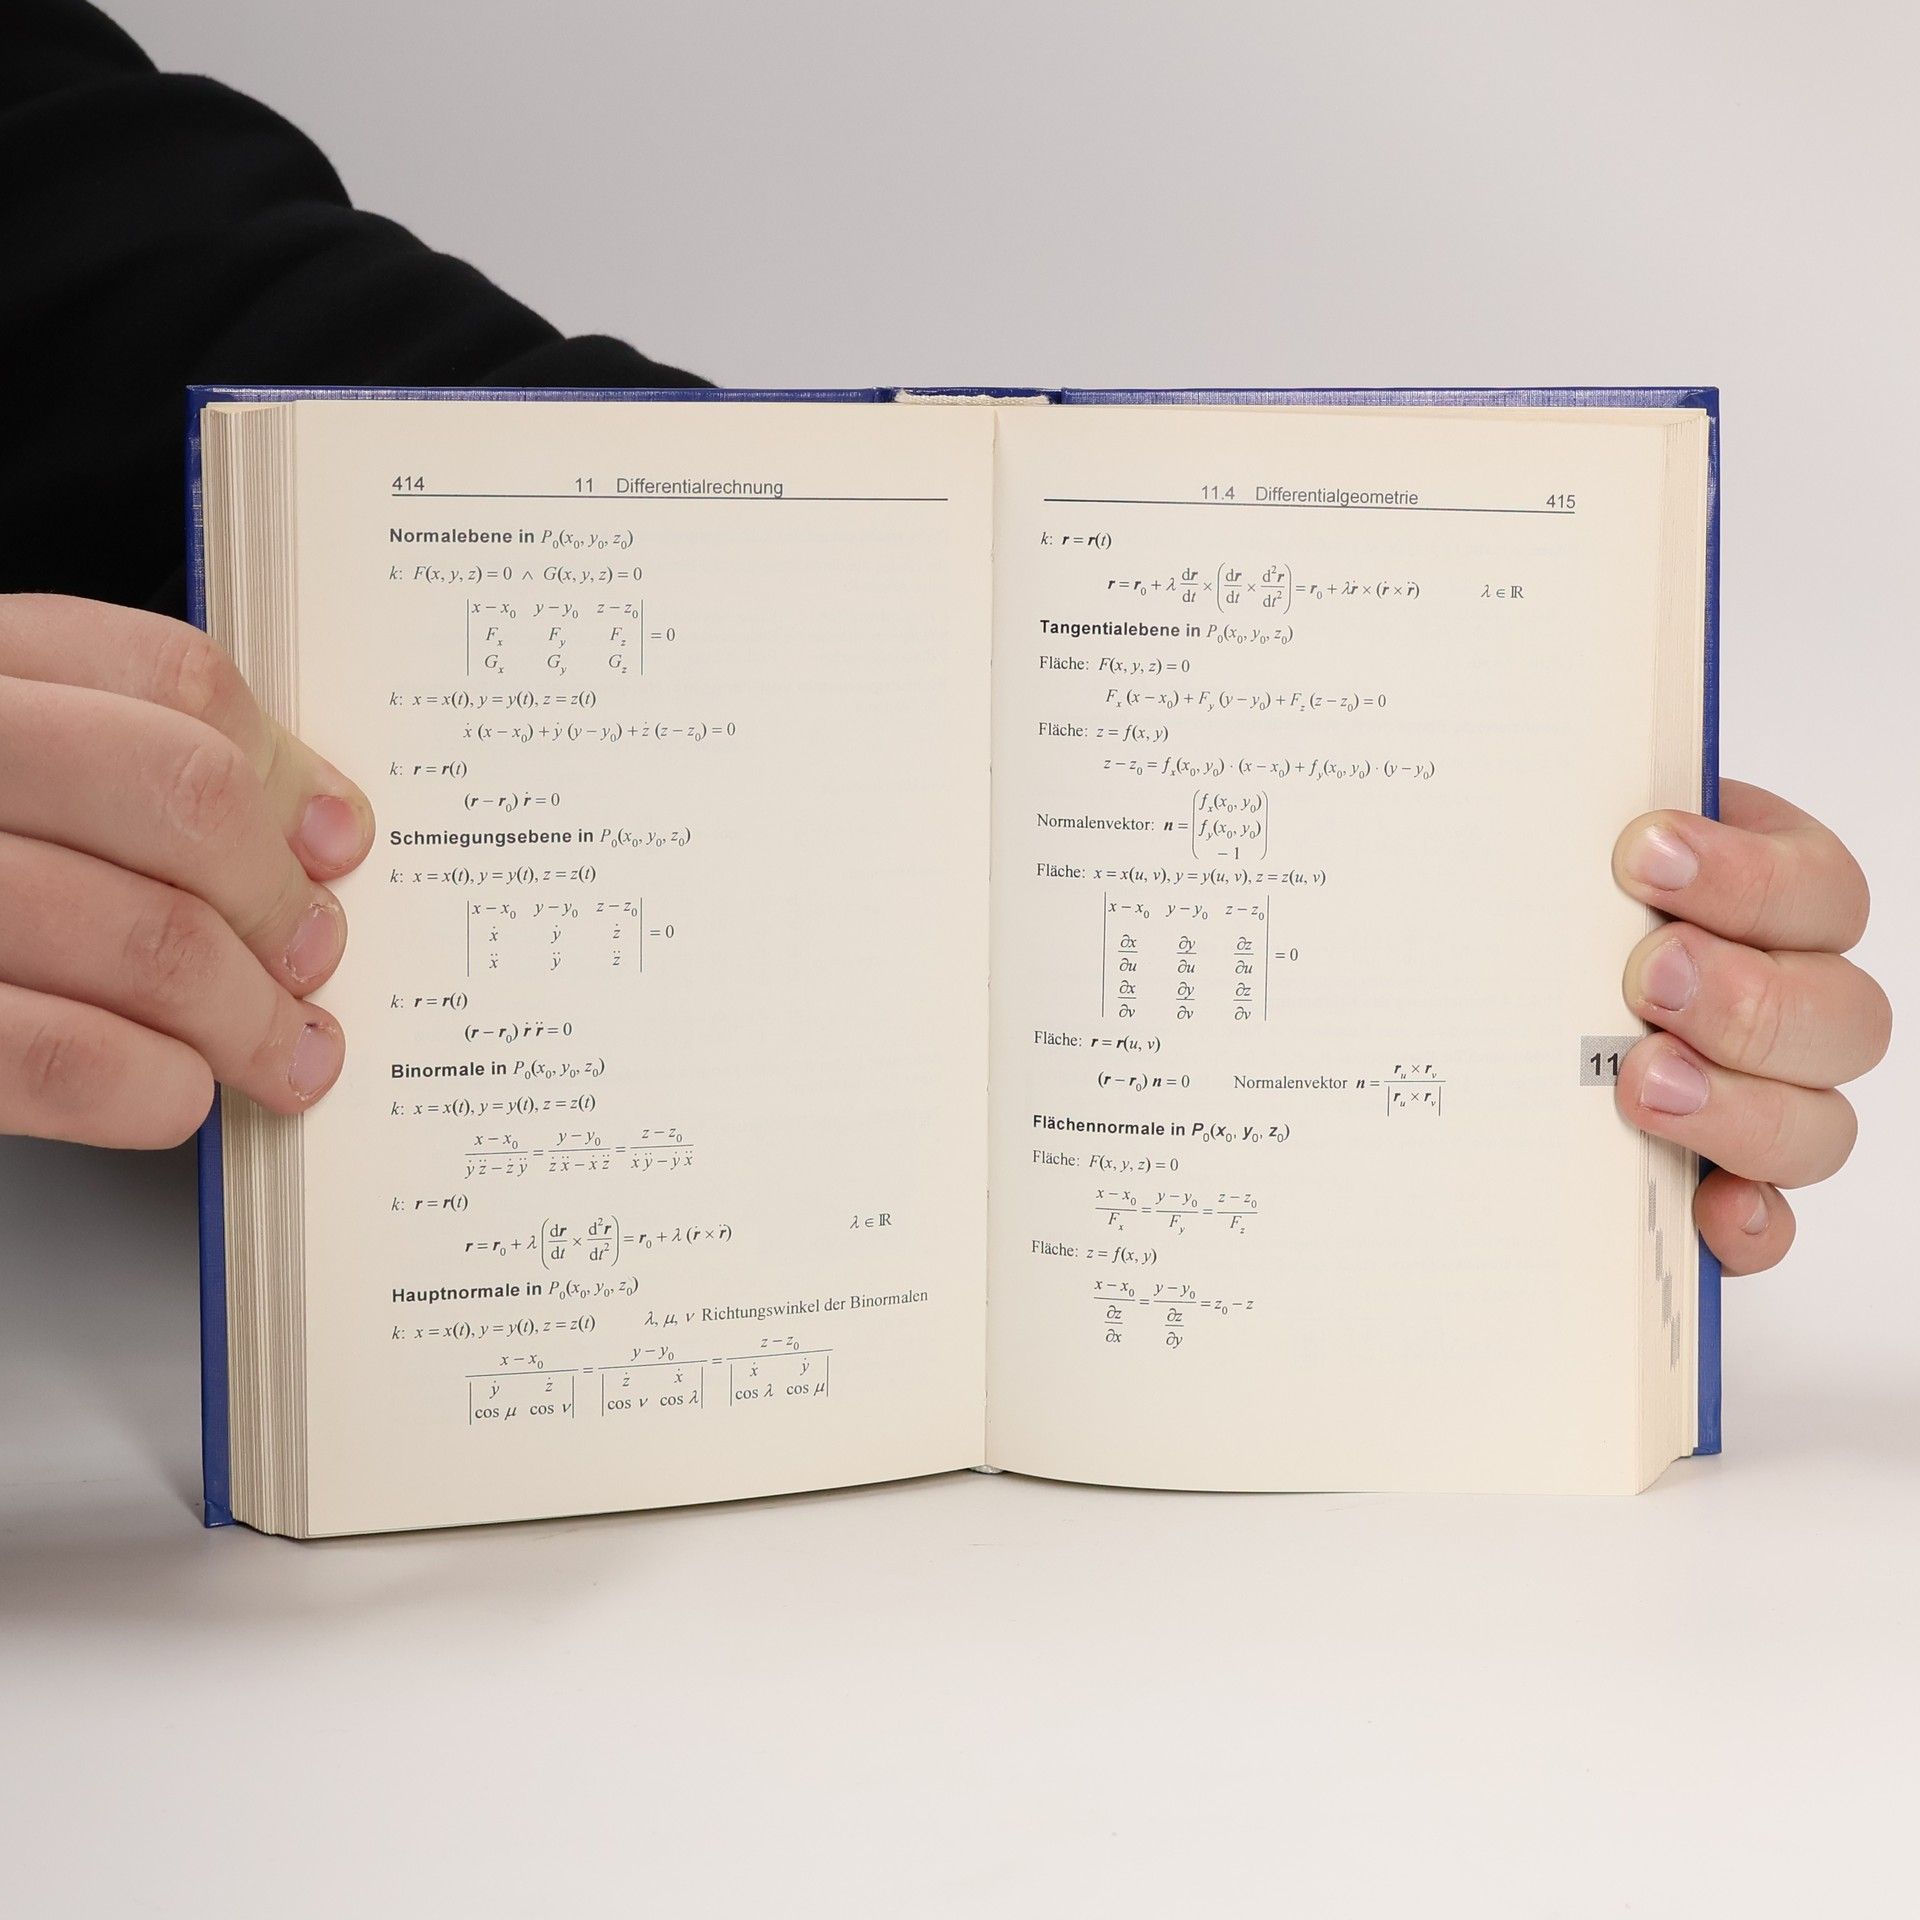 414 11 Differentialrechnung
Normalebene in P₀(x₀, y₀, z₀)
k: F(x, y, z) = 0 ∧ G(x, y, z) = 0
|x − x₀ y − y₀ z − z₀|
|Fₓ F_y F_z| = 0
|Gₓ G_y G_z|
k: x = x(t), y = y(t), z = z(t)
ẋ (x − x₀) + ẏ (y − y₀) + ż (z − z₀) = 0
k: r = r(t)
(r − r₀) ṙ = 0
Schmiegungsebene in P₀(x₀, y₀, z₀)
k: x = x(t), y = y(t), z = z(t)
|x − x₀ y − y₀ z − z₀|
|ẋ ẏ ż| = 0
|ẍ ÿ z̈|
k: r = r(t)
(r − r₀) ṙ r̈ = 0
Binormale in P₀(x₀, y₀, z₀)
k: x = x(t), y = y(t), z = z(t)
(x − x₀)/(ẏ z̈ − ż ÿ) = (y − y₀)/(ż ẍ − ẋ z̈) = (z − z₀)/(ẋ ÿ − ẏ ẍ)
k: r = r(t)
r = r₀ + λ (dr/dt × d²r/dt²) = r₀ + λ (ṙ × r̈) λ ∈ ℝ
Hauptnormale in P₀(x₀, y₀, z₀)
k: x = x(t), y = y(t), z = z(t) λ, μ, ν Richtungswinkel der Binormalen
x − x₀ y − y₀ z − z₀
|ẏ ż| = |ż ẋ| = |ẋ ẏ|
|cos μ cos ν| |cos ν cos λ| |cos λ cos μ|
11.4 Differentialgeometrie 415
k: r = r(t)
r = r₀ + λ dr/dt × (dr/dt × d²r/dt²) = r₀ + λṙ × (ṙ × r̈) λ ∈ ℝ
Tangentialebene in P₀(x₀, y₀, z₀)
Fläche: F(x, y, z) = 0
Fₓ (x − x₀) + F_y (y − y₀) + F_z (z − z₀) = 0
Fläche: z = f(x, y)
z − z₀ = fₓ(x₀, y₀) · (x − x₀) + f_y(x₀, y₀) · (y − y₀)
(fₓ(x₀, y₀))
Normalenvektor: n = (f_y(x₀, y₀))
(− 1)
Fläche: x = x(u, v), y = y(u, v), z = z(u, v)
|x − x₀ y − y₀ z − z₀|
|∂x/∂u ∂y/∂u ∂z/∂u| = 0
|∂x/∂v ∂y/∂v ∂z/∂v|
Fläche: r = r(u, v)
(r − r₀) n = 0 Normalenvektor n = (r_u × r_v)/|r_u × r_v|
11
Flächennormale in P₀(x₀, y₀, z₀)
Fläche: F(x, y, z) = 0
(x − x₀)/Fₓ = (y − y₀)/F_y = (z − z₀)/F_z
Fläche: z = f(x, y)
(x − x₀)/(∂z/∂x) = (y − y₀)/(∂z/∂y) = z₀ − z